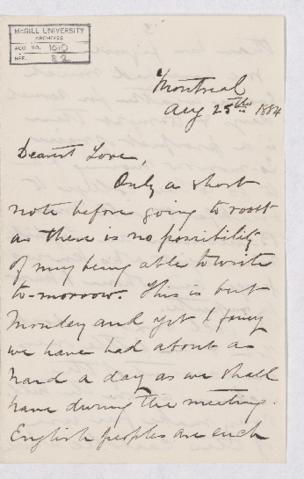 McGILL UNIVERSITY
ARCHIVES
ACC. NO. 1010
REF.
Montreal
Aug 25th 1884
Dearest Love,
Only a short
note before going to roost
as there is no possibility
of my being able to write
to-morrow. This is but
Monday and yet I fancy
we have had about as
hard a day as we shall
have during the meeting.
English peoples are such